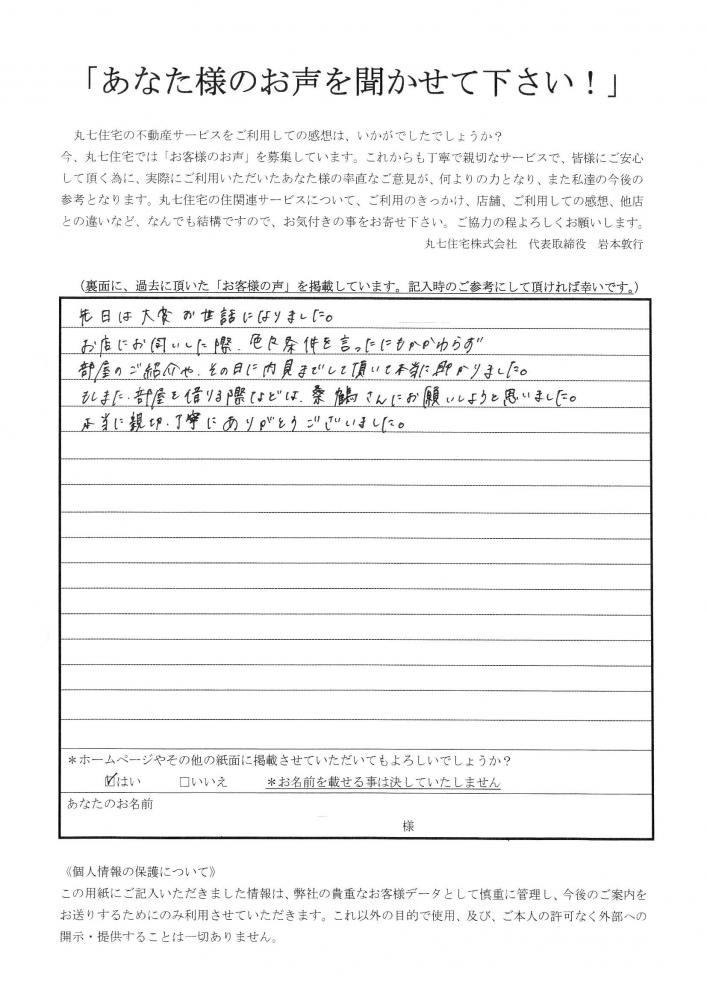 「あなた様のお声を聞かせて下さい！」
丸七住宅の不動産サービスをご利用しての感想は、いかがでしたでしょうか？
今、丸七住宅では「お客様のお声」を募集しています。これからも丁寧で親切なサービスで、皆様にご安心
して頂く為に、実際にご利用いただいたあなた様の率直なご意見が、何よりの力となり、また私達の今後の
参考となります。丸七住宅の住関連サービスについて、ご利用のきっかけ、店舗、ご利用しての感想、他店
との違いなど、なんでも結構ですので、お気付きの事をお寄せ下さい。ご協力の程よろしくお願いします。
丸七住宅株式会社　代表取締役　岩本敦行
（裏面に、過去に頂いた「お客様の声」を掲載しています。記入時のご参考にして頂ければ幸いです。）
先日は大変お世話になりました。
お店にお伺いした際、色々条件を言ったにもかかわらず
部屋のご紹介や、その日に内見までして頂いて本当に助かりました。
もしまた、部屋を借りる際などは、桑鶴さんにお願いしようと思いました。
本当に親切、丁寧にありがとうございました。
＊ホームページやその他の紙面に掲載させていただいてもよろしいでしょうか？
☑はい　□いいえ　＊お名前を載せる事は決していたしません
あなたのお名前
様
《個人情報の保護について》
この用紙にご記入いただきました情報は、弊社の貴重なお客様データとして慎重に管理し、今後のご案内を
お送りするためにのみ利用させていただきます。これ以外の目的で使用、及び、ご本人の許可なく外部への
開示・提供することは一切ありません。